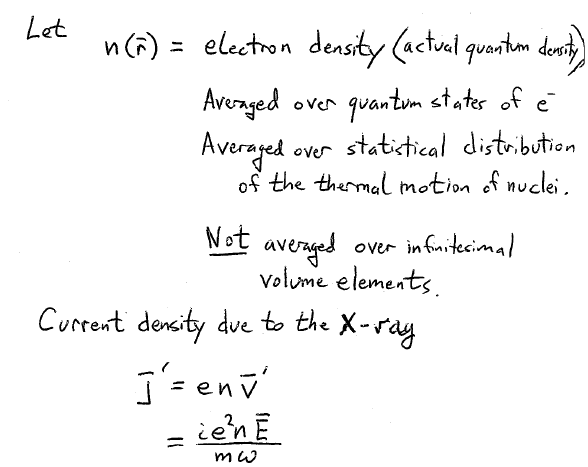 Let n(r̄) = electron density (actual quantum density)
Averaged over quantum states of e⁻
Averaged over statistical distribution
of the thermal motion of nuclei.
Not averaged over infinitesimal
volume elements.
Current density due to the X-ray
J̄′ = e n v̄′
= ie²n Ē / mω